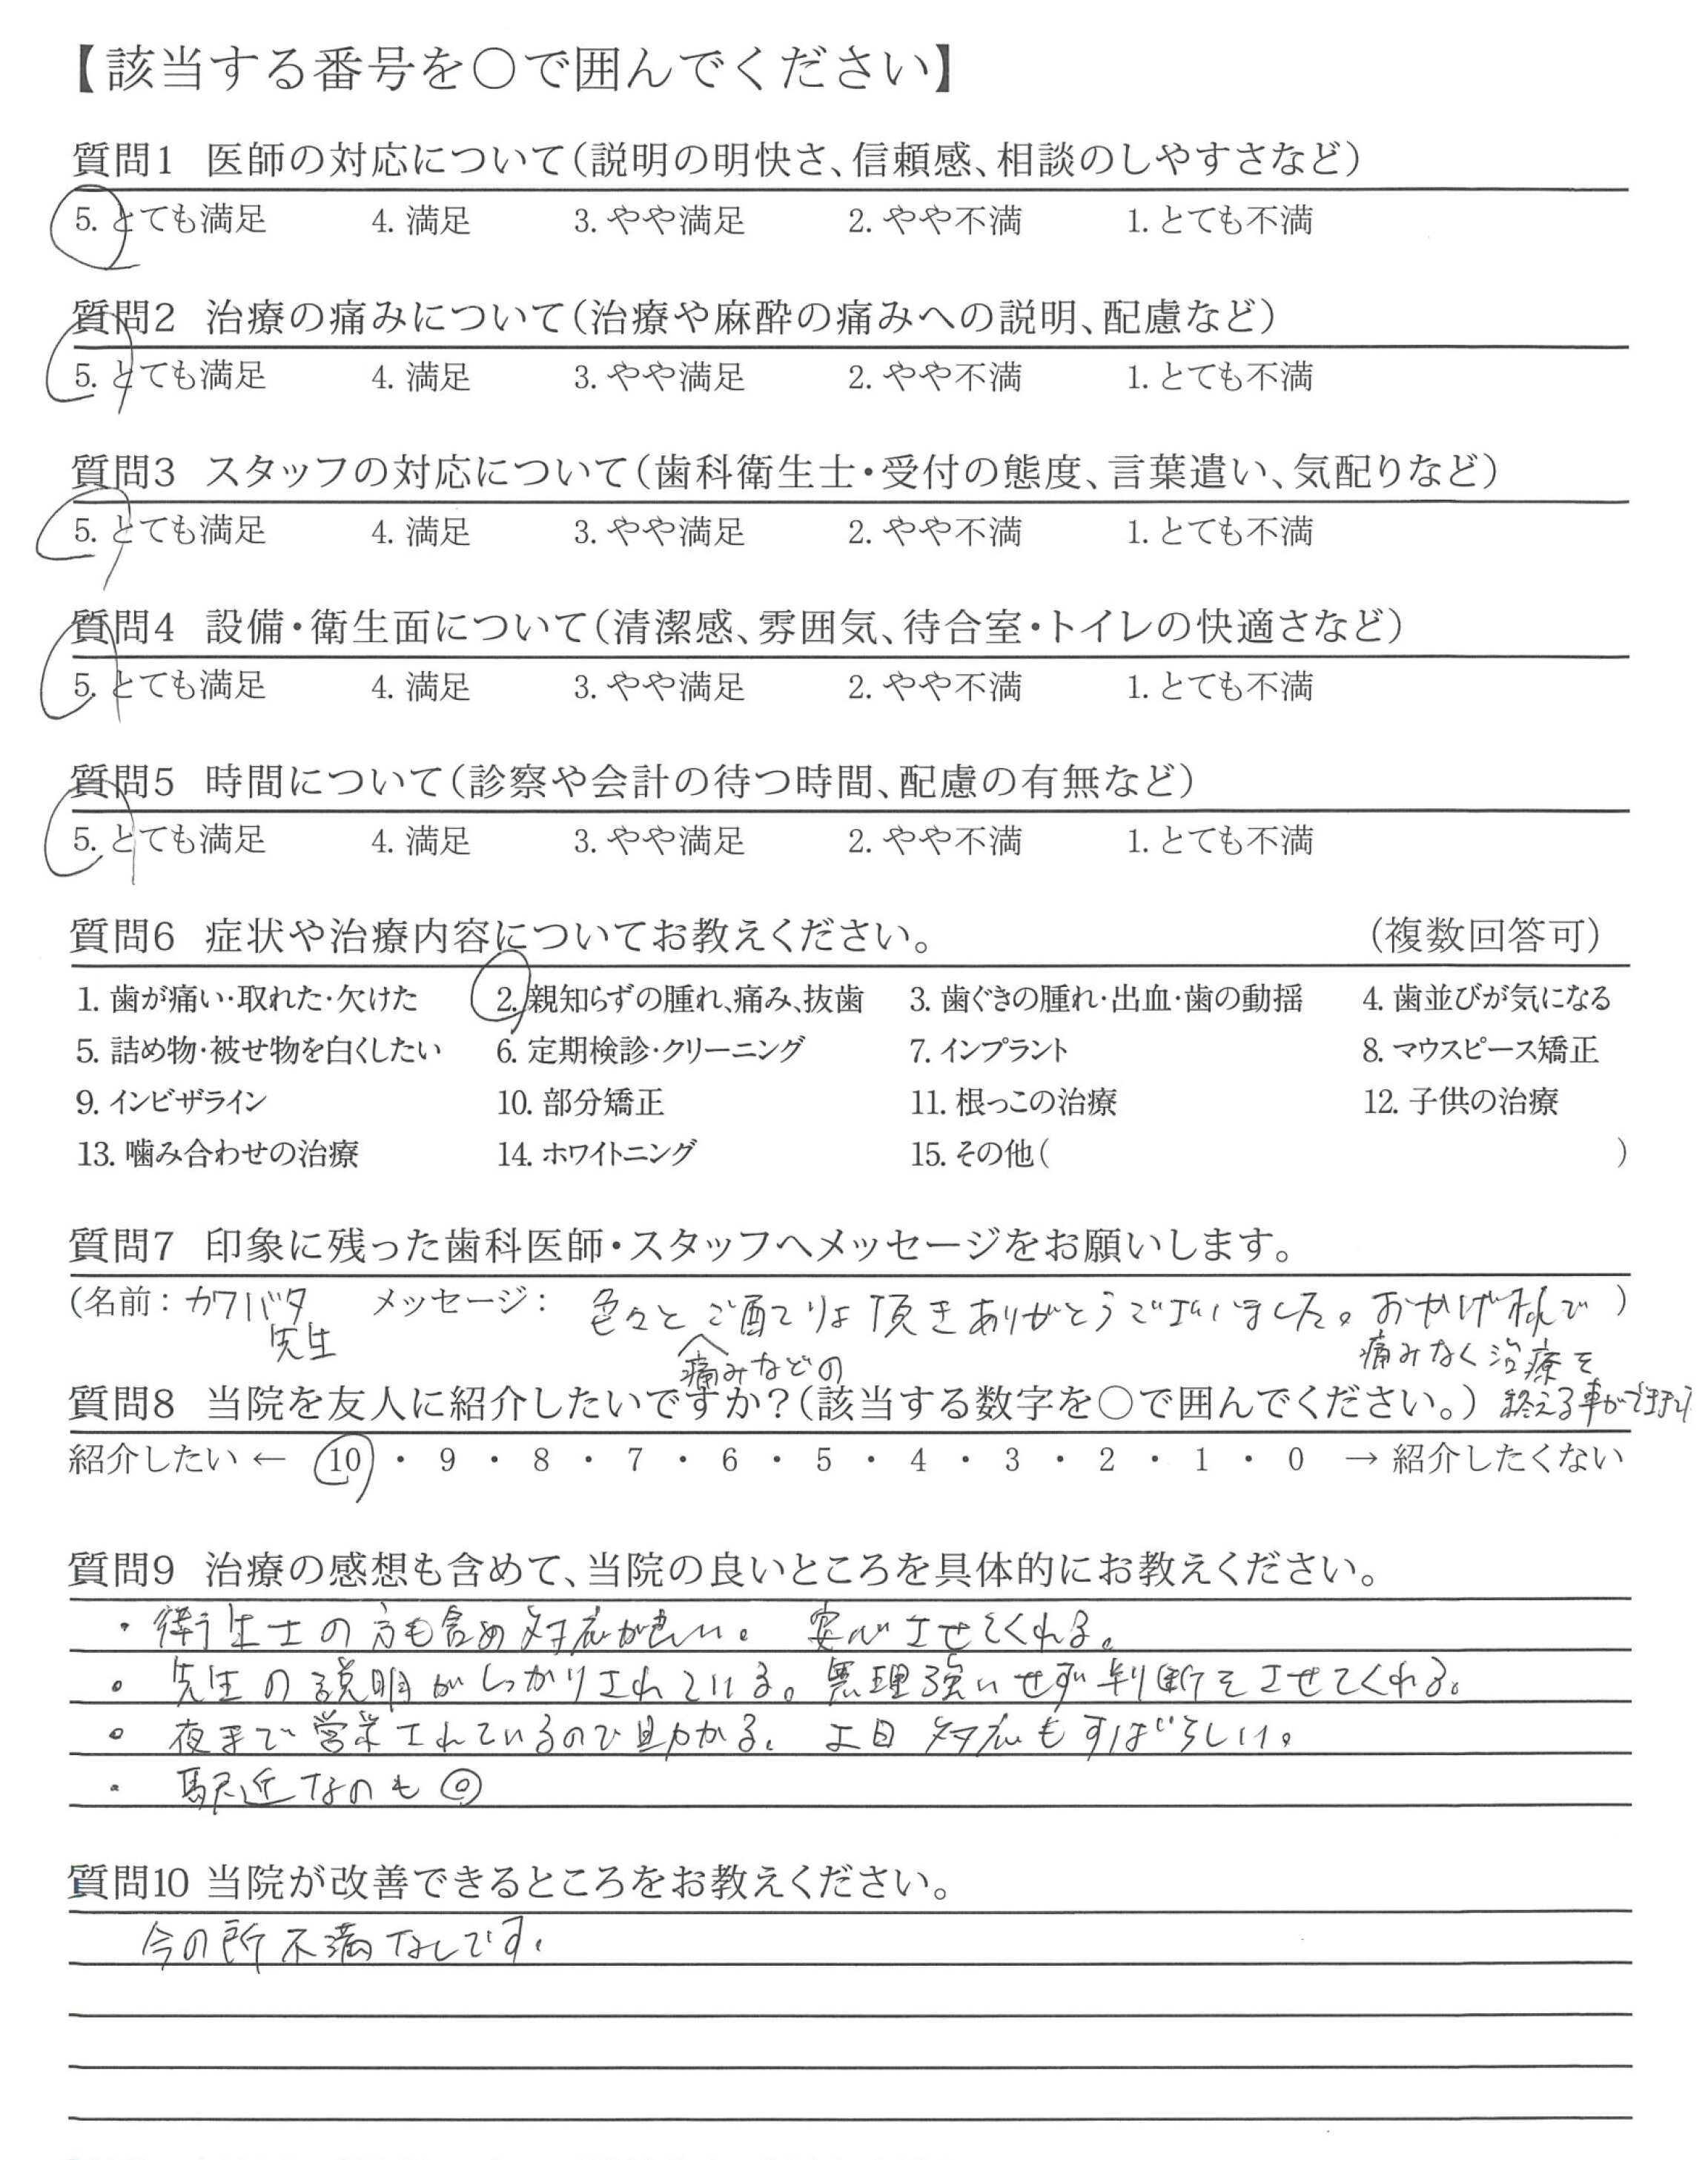 【該当する番号を○で囲んでください】
質問1 医師の対応について(説明の明快さ、信頼感、相談のしやすさなど)
5. とても満足 4. 満足 3. やや満足 2. やや不満 1. とても不満
質問2 治療の痛みについて(治療や麻酔の痛みへの説明、配慮など)
5. とても満足 4. 満足 3. やや満足 2. やや不満 1. とても不満
質問3 スタッフの対応について(歯科衛生士・受付の態度、言葉遣い、気配りなど)
5. とても満足 4. 満足 3. やや満足 2. やや不満 1. とても不満
質問4 設備・衛生面について(清潔感、雰囲気、待合室・トイレの快適さなど)
5. とても満足 4. 満足 3. やや満足 2. やや不満 1. とても不満
質問5 時間について(診察や会計の待つ時間、配慮の有無など)
5. とても満足 4. 満足 3. やや満足 2. やや不満 1. とても不満
質問6 症状や治療内容についてお教えください。 (複数回答可)
1. 歯が痛い・取れた・欠けた 2. 親知らずの腫れ、痛み、抜歯 3. 歯ぐきの腫れ・出血・歯の動揺 4. 歯並びが気になる
5. 詰め物・被せ物を白くしたい 6. 定期検診・クリーニング 7. インプラント 8. マウスピース矯正
9. インビザライン 10. 部分矯正 11. 根っこの治療 12. 子供の治療
13. 噛み合わせの治療 14. ホワイトニング 15. その他( )
質問7 印象に残った歯科医師・スタッフへメッセージをお願いします。
(名前: カワバタ メッセージ: 色々とご配りょ頂きありがとうございました。おかげ様で )
先生 痛みなどの 痛みなく治療を
質問8 当院を友人に紹介したいですか?(該当する数字を○で囲んでください。) 終える事ができました
紹介したい ← 10 ・ 9 ・ 8 ・ 7 ・ 6 ・ 5 ・ 4 ・ 3 ・ 2 ・ 1 ・ 0 → 紹介したくない
質問9 治療の感想も含めて、当院の良いところを具体的にお教えください。
・衛生士の方も含め対応が良い。 安心させてくれる。
・先生の説明がしっかりされている。無理強いせず判断をさせてくれる。
・夜まで営業されているので助かる。 土日対応もすばらしい。
・駅近なのも◎
質問10 当院が改善できるところをお教えください。
今の所不満なしです。